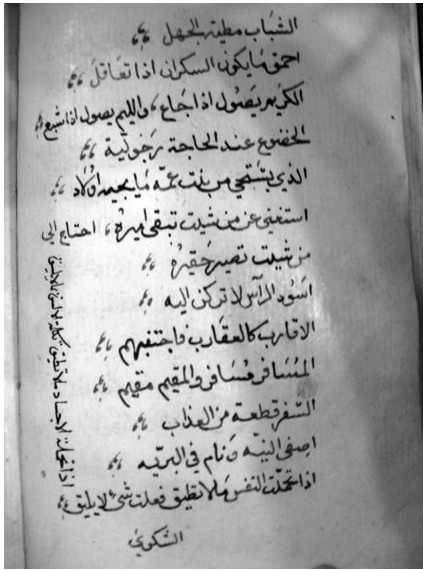 الشباب مطية الجهل
احمق ما يكون السكران اذا تعاقل
الكريم يصول اذا جاع، واليم يصول اذا شبع
الخضوع عند الحاجة رجولية
الذي يستحي من بنت عمه ما يجيه اولاد
استغني عن من شيت تبقى اميره، احتاج الى
من شيت تصير حقيره
اسود الراس لا تركن اليه
الاقارب كالعقارب فاجتنبهم
المسافر مسافر والمقيم مقيم
السفر قطعة من العذاب
اصفى النيه ونام في البريه
اذا تحملت النفس ما لا تطيق فعلت شي لا يليق
الشكوي
اذا تحملت الاجساد ما لا تطيق